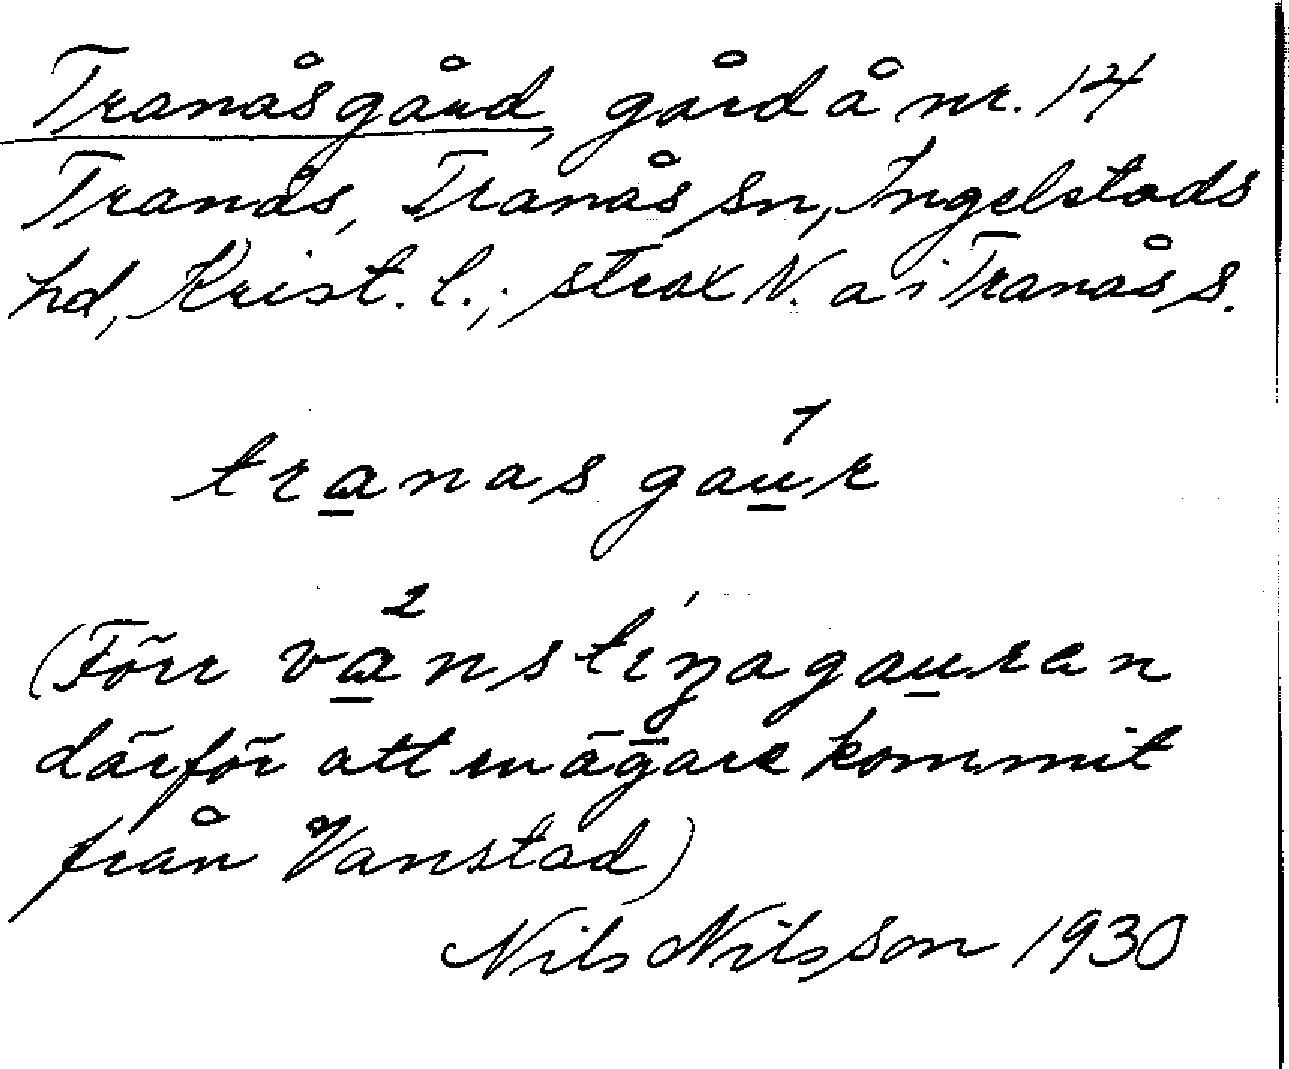 Tranåsgård, gård å nr. 14
Tranås, Tranås sn, Ingelstads
hd, Krist. l.; strax N. a i Tranås s.
tranasgaur
(Förr vanstiŋagauren
därför att en ägare kommit
från Vanstad)
Nils Nilsson 1930